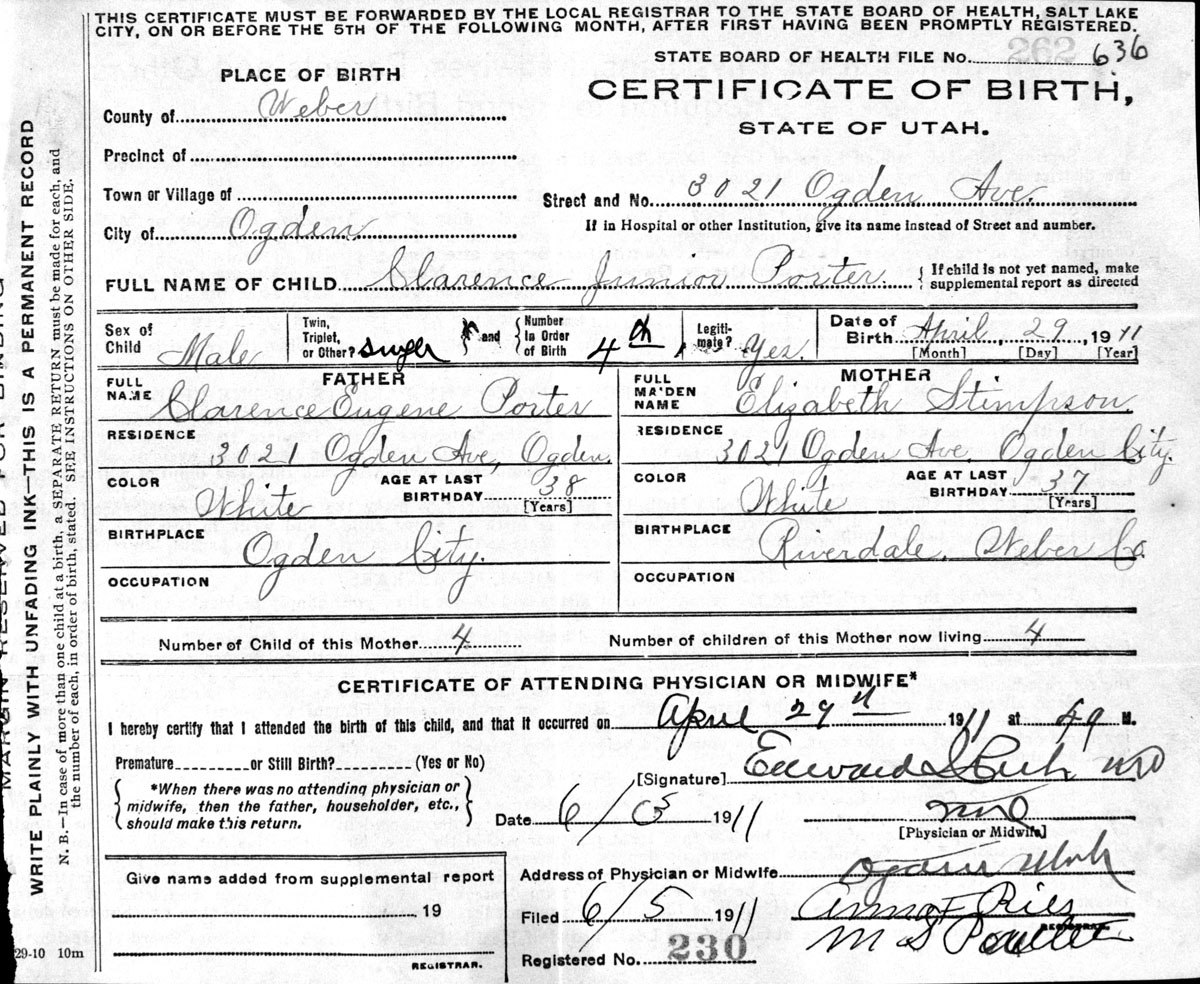 THIS CERTIFICATE MUST BE FORWARDED BY THE LOCAL REGISTRAR TO THE STATE BOARD OF HEALTH, SALT LAKE
CITY, ON OR BEFORE THE 5TH OF THE FOLLOWING MONTH, AFTER FIRST HAVING BEEN PROMPTLY REGISTERED.
262
STATE BOARD OF HEALTH FILE No. 636
PLACE OF BIRTH
CERTIFICATE OF BIRTH,
STATE OF UTAH.
County of Weber
Precinct of
Town or Village of
Street and No. 3021 Ogden Ave.
City of Ogden
If in Hospital or other Institution, give its name instead of Street and number.
FULL NAME OF CHILD Clarence Junior Porter
{ If child is not yet named, make
supplemental report as directed
Sex of Child Male
Twin, Triplet, or Other?
and { Number In Order of Birth 4th
Legitimate? Yes.
Date of Birth April 29, 1911
[Month] [Day] [Year]
FATHER
FULL NAME Clarence Eugene Porter
RESIDENCE 3021 Ogden Ave, Ogden.
COLOR White
AGE AT LAST BIRTHDAY 38
[Years]
BIRTHPLACE Ogden City.
OCCUPATION
MOTHER
FULL MAIDEN NAME Elizabeth Stimpson.
RESIDENCE 3021 Ogden Ave. Ogden City.
COLOR White
AGE AT LAST BIRTHDAY 37
[Years]
BIRTHPLACE Riverdale. Weber Co.
OCCUPATION
Number of Child of this Mother 4
Number of children of this Mother now living 4
CERTIFICATE OF ATTENDING PHYSICIAN OR MIDWIFE*
I hereby certify that I attended the birth of this child, and that it occurred on April 29 1911 at M.
Premature or Still Birth? (Yes or No)
[Signature] Edward MD
*When there was no attending physician or
midwife, then the father, householder, etc.,
should make this return.
Date 6/5 1911
MD
[Physician or Midwife]
Give name added from supplemental report
19
REGISTRAR.
Address of Physician or Midwife Ogden Utah
Filed 6/5 1911
Anna F Ries
REGISTRAR.
M S
Registered No. 230
29-10 10m
MARGIN RESERVED FOR BINDING
WRITE PLAINLY WITH UNFADING INK—THIS IS A PERMANENT RECORD
N. B.—In case of more than one child at a birth, a SEPARATE RETURN must be made for each, and
the number of each, in order of birth, stated. SEE INSTRUCTIONS ON OTHER SIDE.